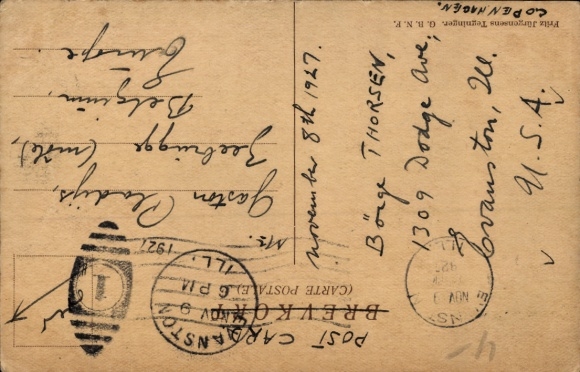 POST CARD
BREVKORT
(CARTE POSTALE)
EVANSTON
NOV 9
6 PM
ILL.
1927
1
EVANSTON
NOV 9
ILL.
Mr.
Gaston Pladijs,
Zeebrügge (môle),
Belgium,
Europe.
November 8th 1927.
Börge THORSEN,
1309 Dodge Ave,
Evanston, Ill.
U.S.A.
Fritz Jürgensens Tegninger. G. B. N. F.
COPENHAGEN.